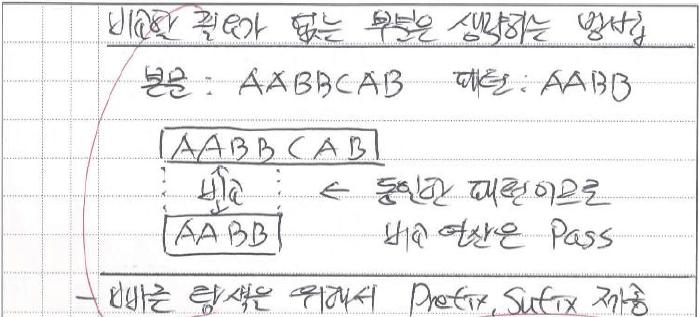 비교할 필요가 없는 부분은 생략하는 방식임
본문 : AABBCAB 패턴 : AABB
AABBCAB
비교 ← 동일한 패턴이므로
AABB 비교 연산은 Pass
- 빠른 탐색을 위해서 Prefix, Sufix 사용